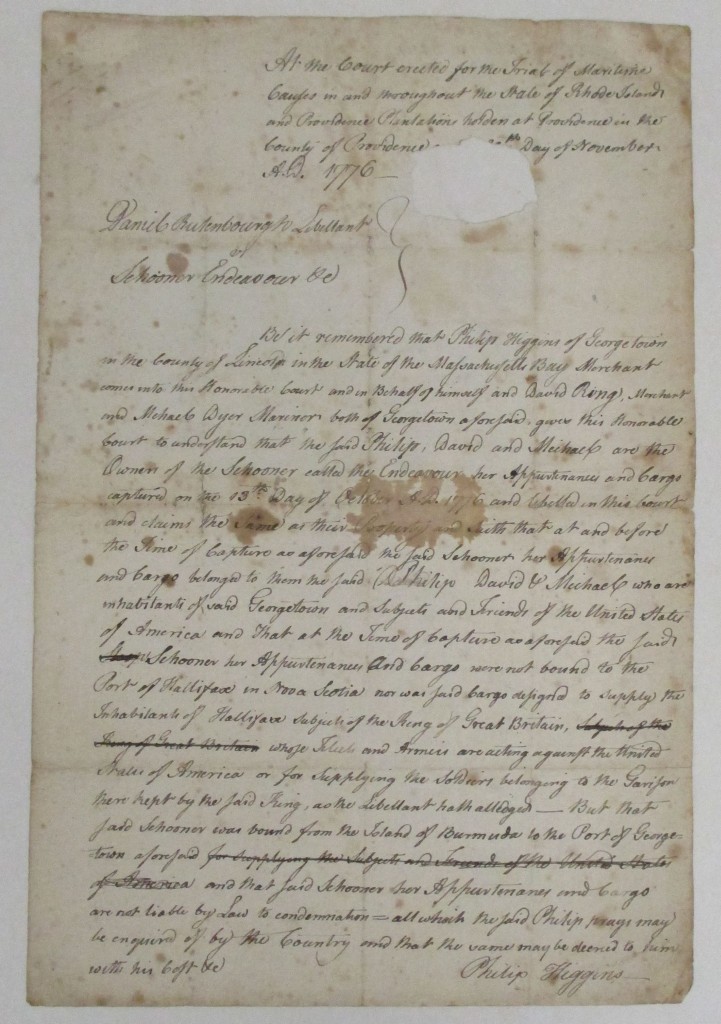 At the Court erected for the Trial of Maritime
Causes in and throughout the State of Rhode Island
and Providence Plantations holden at Providence in the
County of Providence Day of November
A.D. 1776
Daniel Libellant
vs
Schooner Endeavour &c
Be it remembered that Philip Higgins of Georgetown
in the County of Lincoln in the State of the Massachusetts Bay Merchant
comes into this Honorable Court and in Behalf of himself and David Ring, Merchant
and Mehael Dyer Marinor both of Georgetown aforesaid, gives this Honorable
Court to understand that the said Philip, David and Michael are the
Owners of the Schooner called the Endeavour her Appurtenances and Cargo
captured on the 13th Day of October A.D. 1776 and libelled in this Court
and claims the Same as their Property and saith that at and before
the Time of Capture as aforesaid the said Schooner her Appurtenances
and Cargo belonged to them the said Philip David & Michael who are
inhabitants of said Georgetown and Subjects and Friends of the United States
of America and That at the Time of Capture as aforesaid the said
Schooner her Appurtenances and Cargo were not bound to the
Port of Hallifax in Nova Scotia nor was said Cargo designed to supply the
Inhabitants of Hallifax Subjects of the King of Great Britain, Subjects of the
King of Great Britain whose Fleets and Armeis are acting against the United
States of America or for Supplying the Soldiers belonging to the Garison
there kept by the said King, as the Libellant hath alledged — But that
said Schooner was bound from the Island of Burmuda to the Port of George-
town aforesaid for supplying the Subjects and Friends of the United States
of America and that said Schooner her Appurtenances and Cargo
are not liable by Law to condemnation = all which the said Philip prays may
be enquired of by the Country and that the same may be decreed to him
with his Cost &c
Philip Higgins